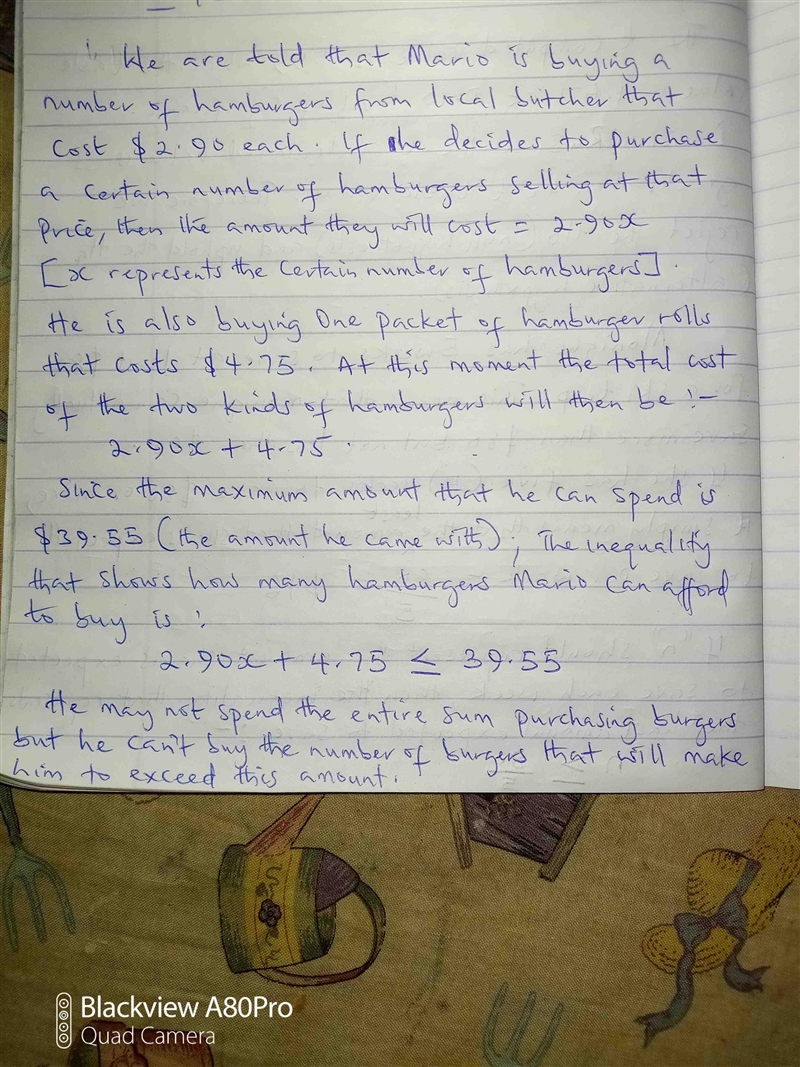 We are told that Mario is buying a
number of hamburgers from local butcher that
Cost $2.90 each. If he decides to purchase
a certain number of hamburgers selling at that
Price, then the amount they will cost = 2.90x
[x represents the certain number of hamburgers].
He is also buying One packet of hamburger rolls
that costs $4.75. At this moment the total cost
of the two kinds of hamburgers will then be :-
2.90x + 4.75.
Since the maximum amount that he can spend is
$39.55 (the amount he came with); The inequality
that shows how many hamburgers Mario can afford
to buy is :
2.90x + 4.75 ≤ 39.55
He may not spend the entire sum purchasing burgers
but he can't buy the number of burgers that will make
him to exceed this amount.
Blackview A80Pro
Quad Camera